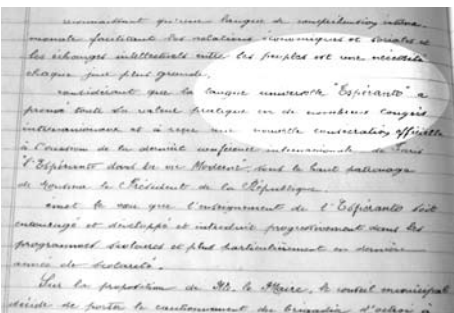 reconnaissant qu'une langue de compréhension interna-
tionale facilitant les relations économiques et sociales et
les échanges intellectuels entre les peuples est une nécessité
chaque jour plus grande,
considérant que la langue universelle "Espéranto" a
prouvé toute sa valeur pratique en de nombreux congrès
internationaux et a reçu une nouvelle consécration officielle
à l'occasion de la dernière conférence internationale de Paris
"l'Espéranto dans la vie Moderne", sous le haut patronage
de Monsieur le Président de la République.
émet le vœu que l'enseignement de l'Espéranto soit
encouragé et développé et introduit progressivement dans les
programmes scolaires et plus particulièrement en dernière
année de scolarité.
Sur la proposition de M. le Maire, le conseil municipal
décide de porter le cautionnement du brigadier d'octroi à